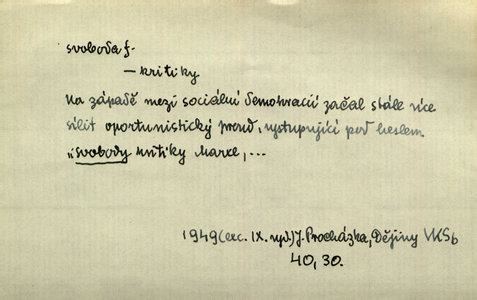 svoboda f.
– kritiky
Na západě mezi sociální demokracií začal stále více
sílit oportunistický proud, vystupující pod heslem
„svobody kritiky Marxe„...
1949 (exc. IX. vyd.) J. Procházka, Dějiny VKSb
40, 30.